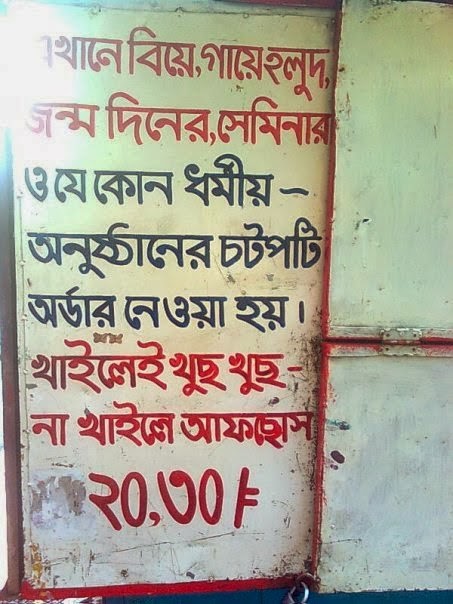 এখানে বিয়ে, গায়ে হলুদ,
জন্ম দিনের, সেমিনার
ও যে কোন ধর্মীয় –
অনুষ্ঠানের চটপটি
অর্ডার নেওয়া হয়।
খাইলেই খুছ খুছ -
না খাইলে আফছোস
২০,৩০৳